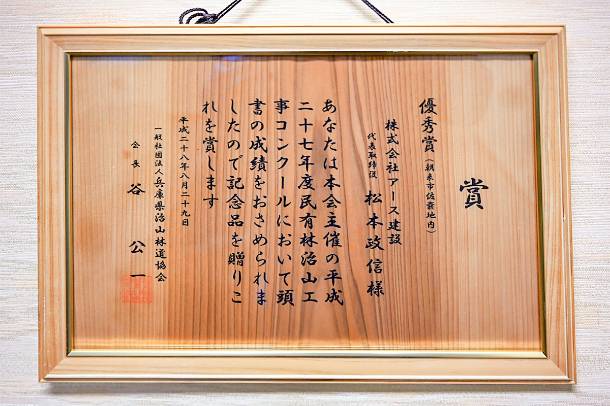 賞
優秀賞（朝来市佐嚢地内）
株式会社アース建設
代表取締役 松本政信様
あなたは本会主催の平成
二十七年度民有林治山工
事コンクールにおいて頭
書の成績をおさめられま
したので記念品を贈りこ
れを賞します
平成二十八年八月二十九日
一般社団法人兵庫県治山林道協会
会長 谷 公一